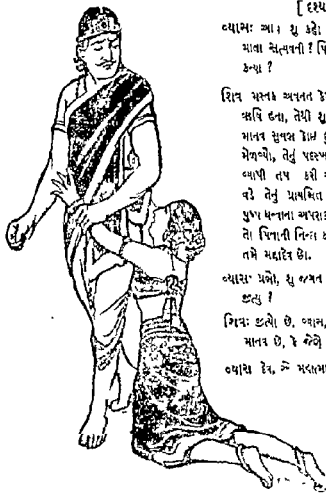 [ દૃશ્ય
વ્યાસઃ આ। શુ કહો
માતા સત્યવતી ? પિ
કન્યા ?
શિવ મસ્તક અવનત
ઋષિ હતા, તેથી શુ
માનવ સુલભ
મેળવ્યો, તેનુ
વ્યાપી તપ કરી
વડે તેનુ પ્રાયશ્ચિત
પુષ્પ ધન્વાના અપરા
તો પિતાની નિન્દા
તમે મહાદેવ છો.
વ્યાસઃ પ્રભો, શુ જગત
જીત્યુ ?
શિવઃ જીત્યો છે, વ્યાસ,
માનવ છે, કે જેણે
વ્યાસ દેવ,